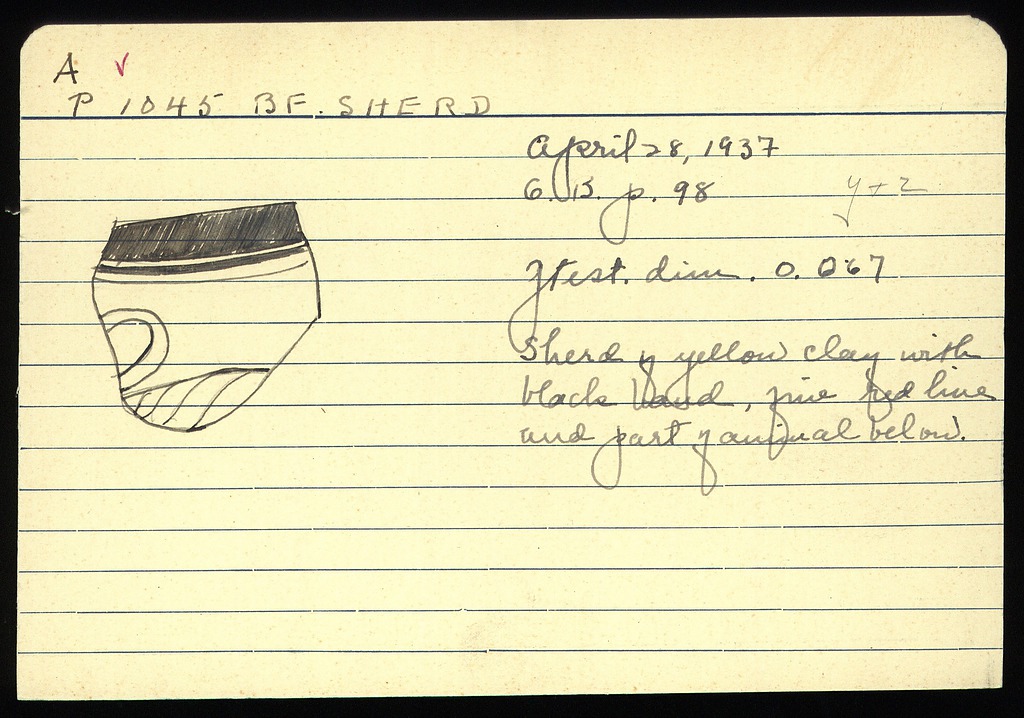 A v
P 1045 BF. SHERD
April 28, 1937
G.B. p. 98 y+z
Gtest. dim. 0.067
Sherd of yellow clay with
black band, fine red line
and part of animal below.